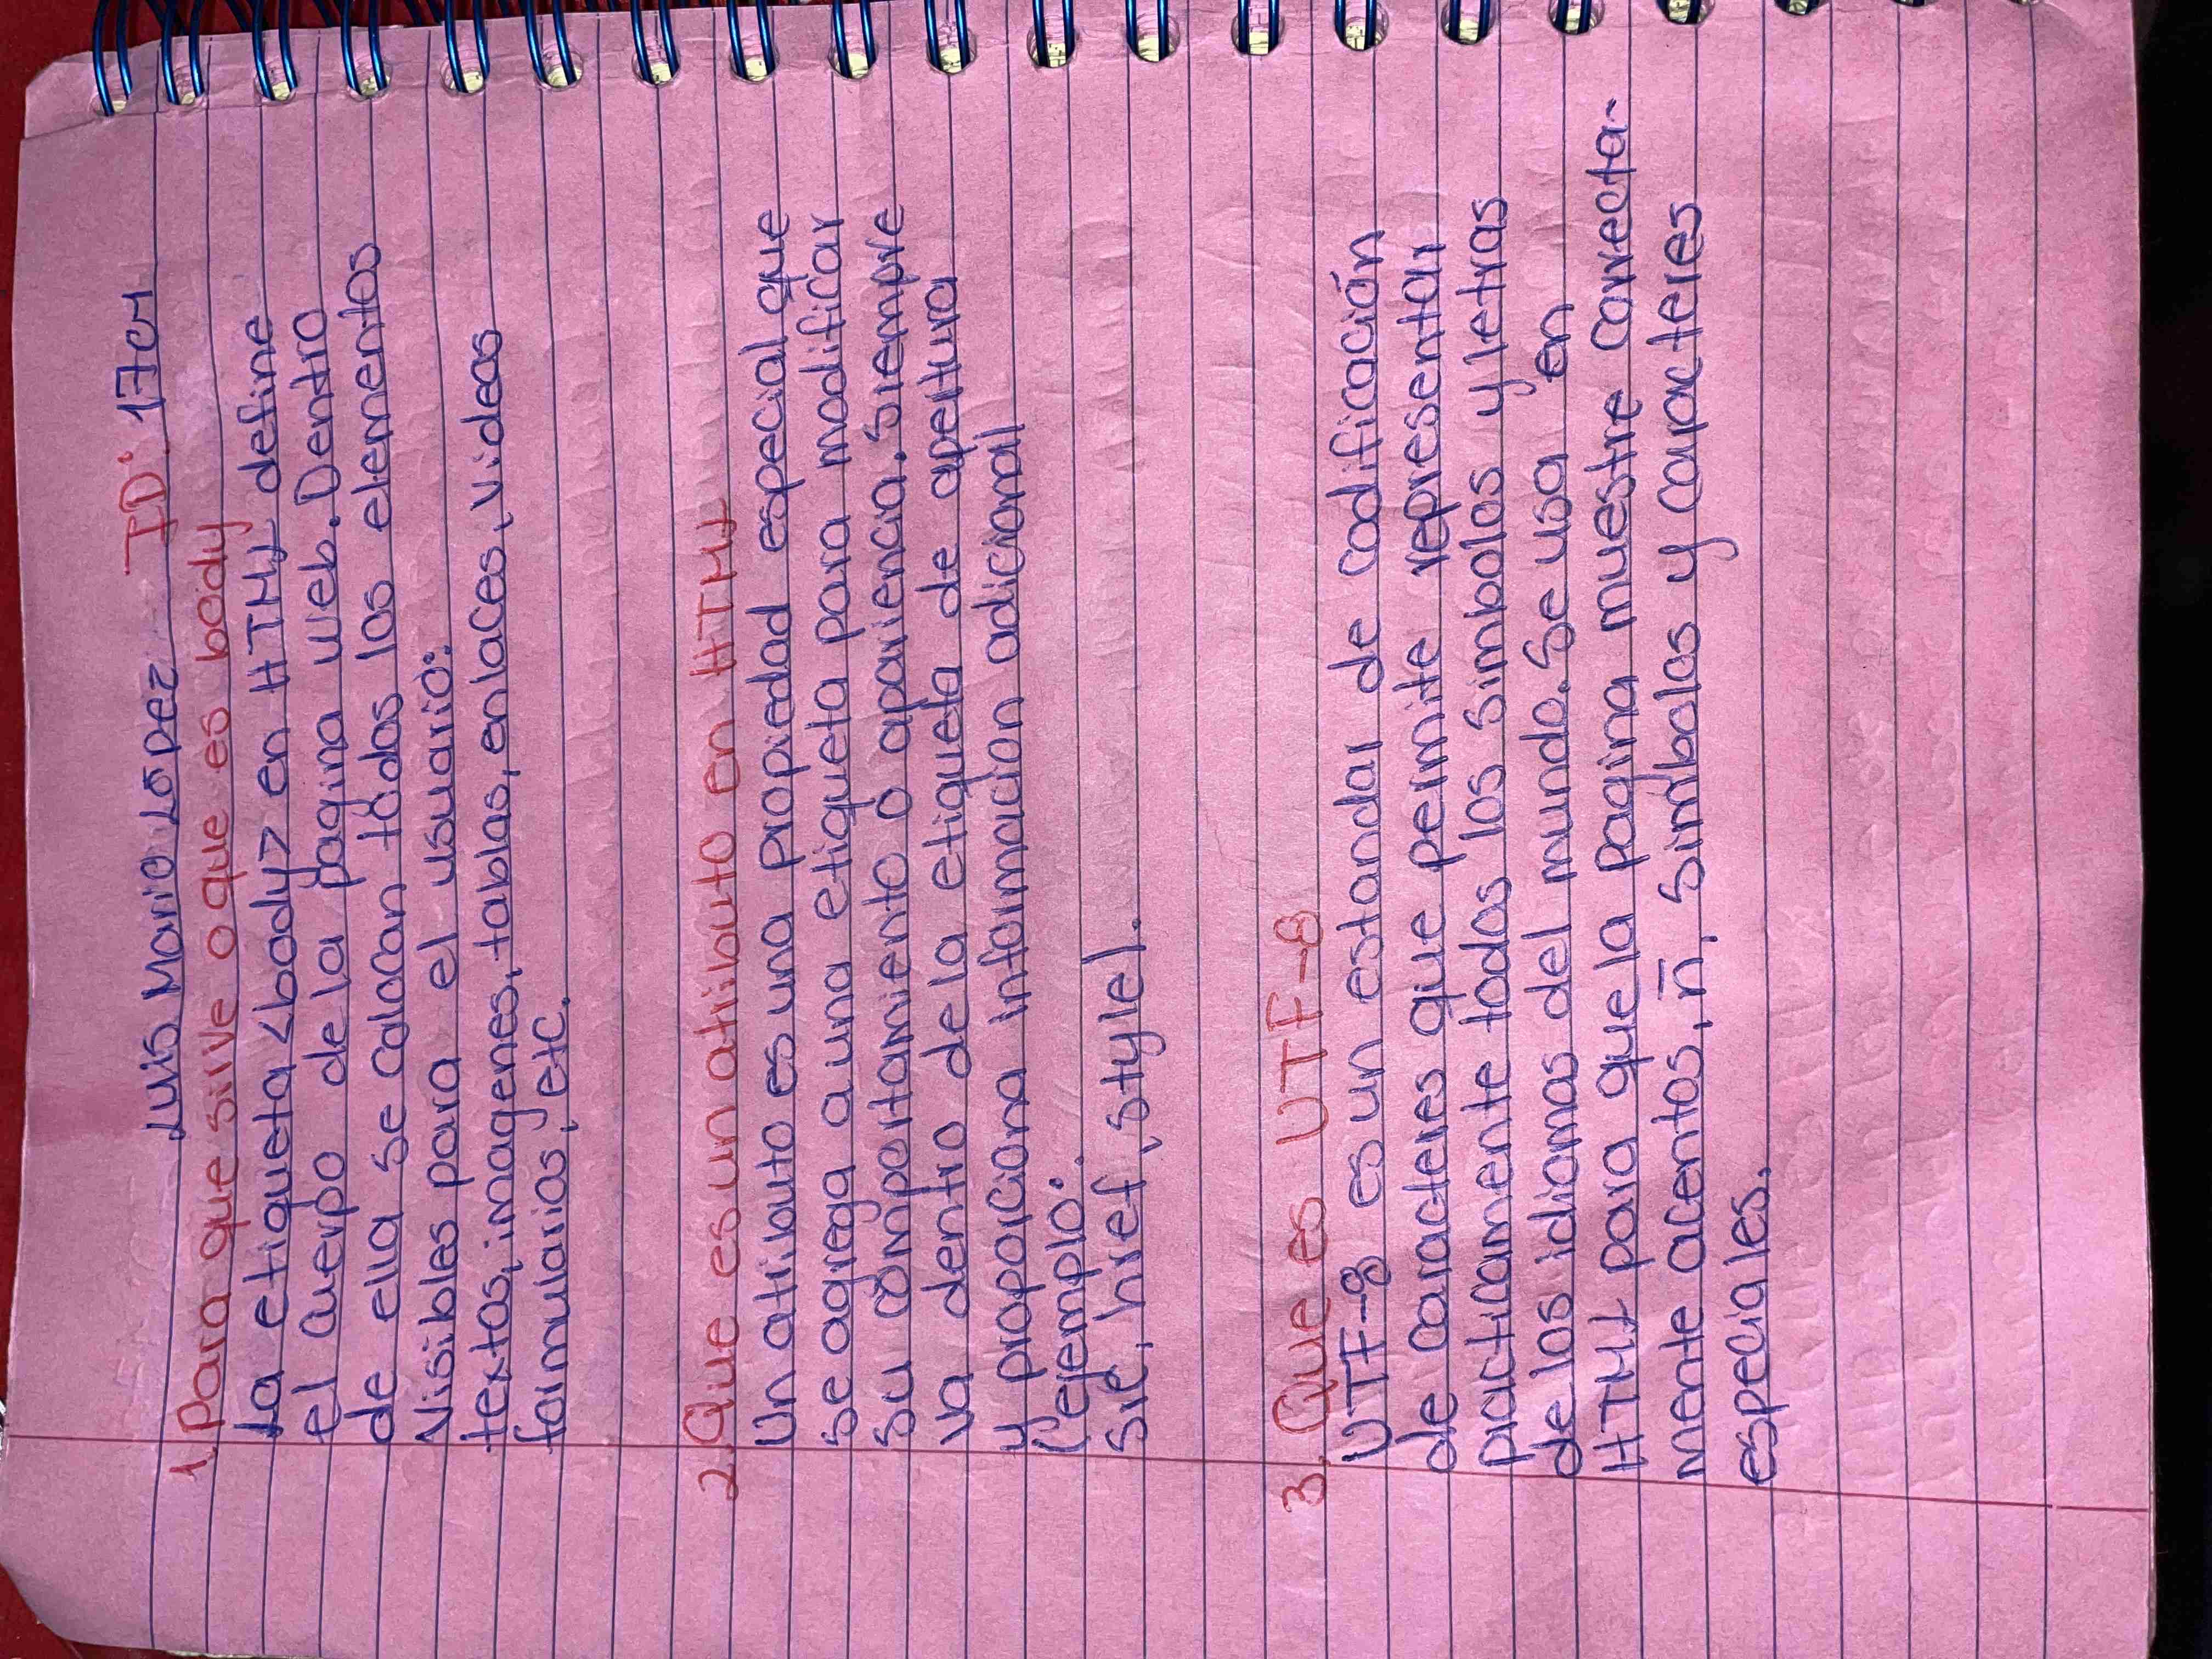 Luis Mario López ID: 1704
1. Para que sirve o que es body
La etiqueta <body> en HTML define
el cuerpo de la pagina web. Dentro
de ella se colocan todos los elementos
visibles para el usuario:
textos, imagenes, tablas, enlaces, videos
formularios, etc.
2. Que es un atributo en HTML
Un atributo es una propiedad especial que
se agrega a una etiqueta para modificar
su comportamiento o apariencia. Siempre
va dentro de la etiqueta de apertura
y proporciona informacion adicional
(ejemplo:
src, href, style).
3. Que es UTF-8
UTF-8 es un estandar de codificación
de caracteres que permite representar
practicamente todos los simbolos y letras
de los idiomas del mundo. Se usa en
HTML para que la pagina muestre correcta-
mente acentos, ñ, simbolos y caracteres
especiales.